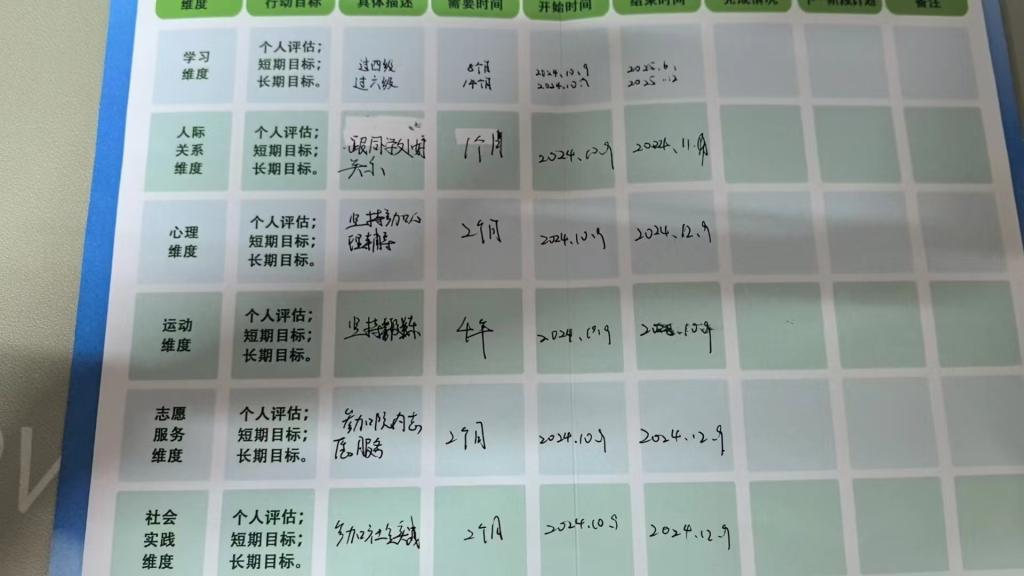 维度 行动目标 具体描述 需要时间 开始时间 结束时间 完成情况 下一阶段计划 备注
学习
维度
个人评估；
短期目标；
长期目标。
过四级
过六级
8个月
14个月
2024.10.9
2024.10.9
2025.6.
2025.12
人际
关系
维度
个人评估；
短期目标；
长期目标。
跟同学处好
关系
1个月
2024.10.9
2024.11.9
心理
维度
个人评估；
短期目标；
长期目标。
坚持参加心
理
2个月
2024.10.9
2024.12.9
运动
维度
个人评估；
短期目标；
长期目标。
坚持锻炼
4年
2024.10.9
志愿
服务
维度
个人评估；
短期目标；
长期目标。
参加院内志
愿服务
2个月
2024.10.9
2024.12.9
社会
实践
维度
个人评估；
短期目标；
长期目标。
参加社会实践
2个月
2024.10.9
2024.12.9